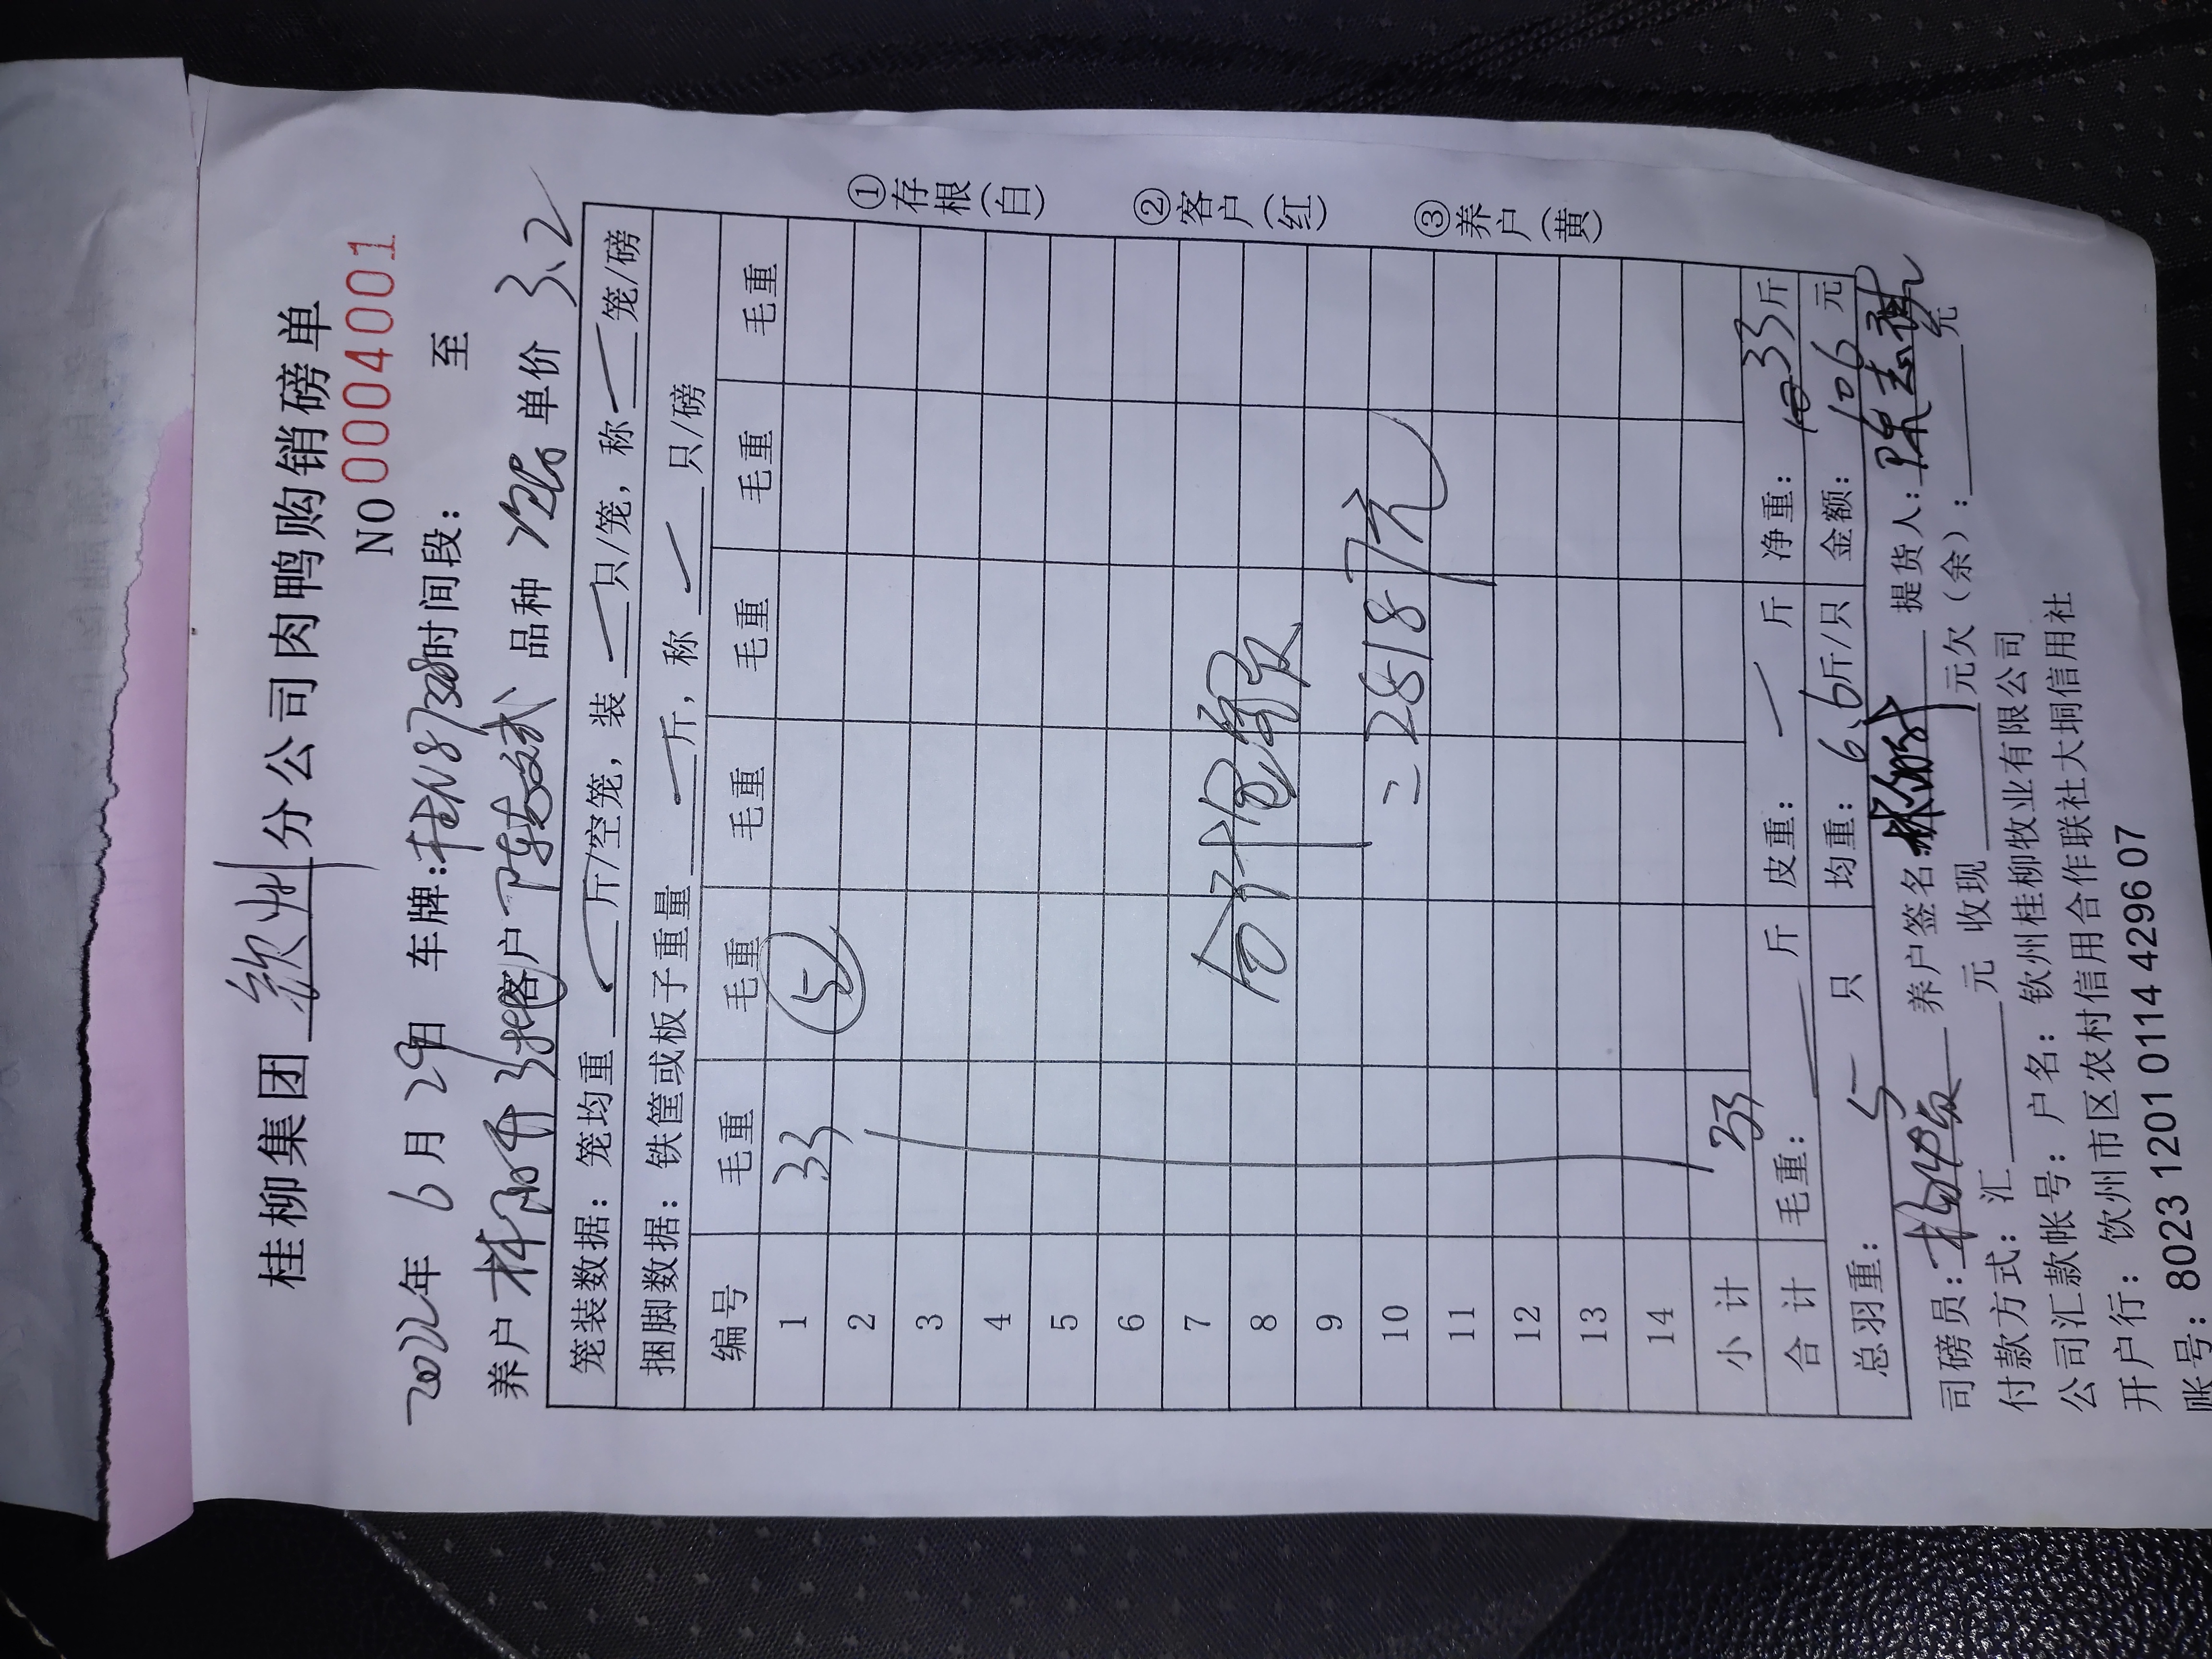 桂柳集团 钦州 分公司肉鸭购销磅单
NO 0004001
2022年 6月 29日 车牌:桂N8738 时间段: 至
养户 客户 陈 品种 单价 3.2
笼装数据: 笼均重 斤/空笼, 装 只/笼, 称 笼/磅
捆脚数据: 铁筐或板子重量 斤, 称 只/磅
编号 毛重 毛重 毛重 毛重 毛重 毛重
1 33 ⑤
2
3
4
5
6
7
8 合计
9
10 =28187元
11
12
13
14
小计 33
合计 毛重: 斤 皮重: 斤 净重: 33斤
总羽重: 5 只 均重: 6.6斤/只 金额: 106元
司磅员: 养户签名: 提货人: 陈志
付款方式: 汇 元 收现 元欠(余): 元
公司汇款帐号: 户名: 钦州桂柳牧业有限公司
开户行: 钦州市区农村信用合作联社大垌信用社
账号: 8023 1201 0114 4296 07
①存根(白)
②客户(红)
③养户(黄)